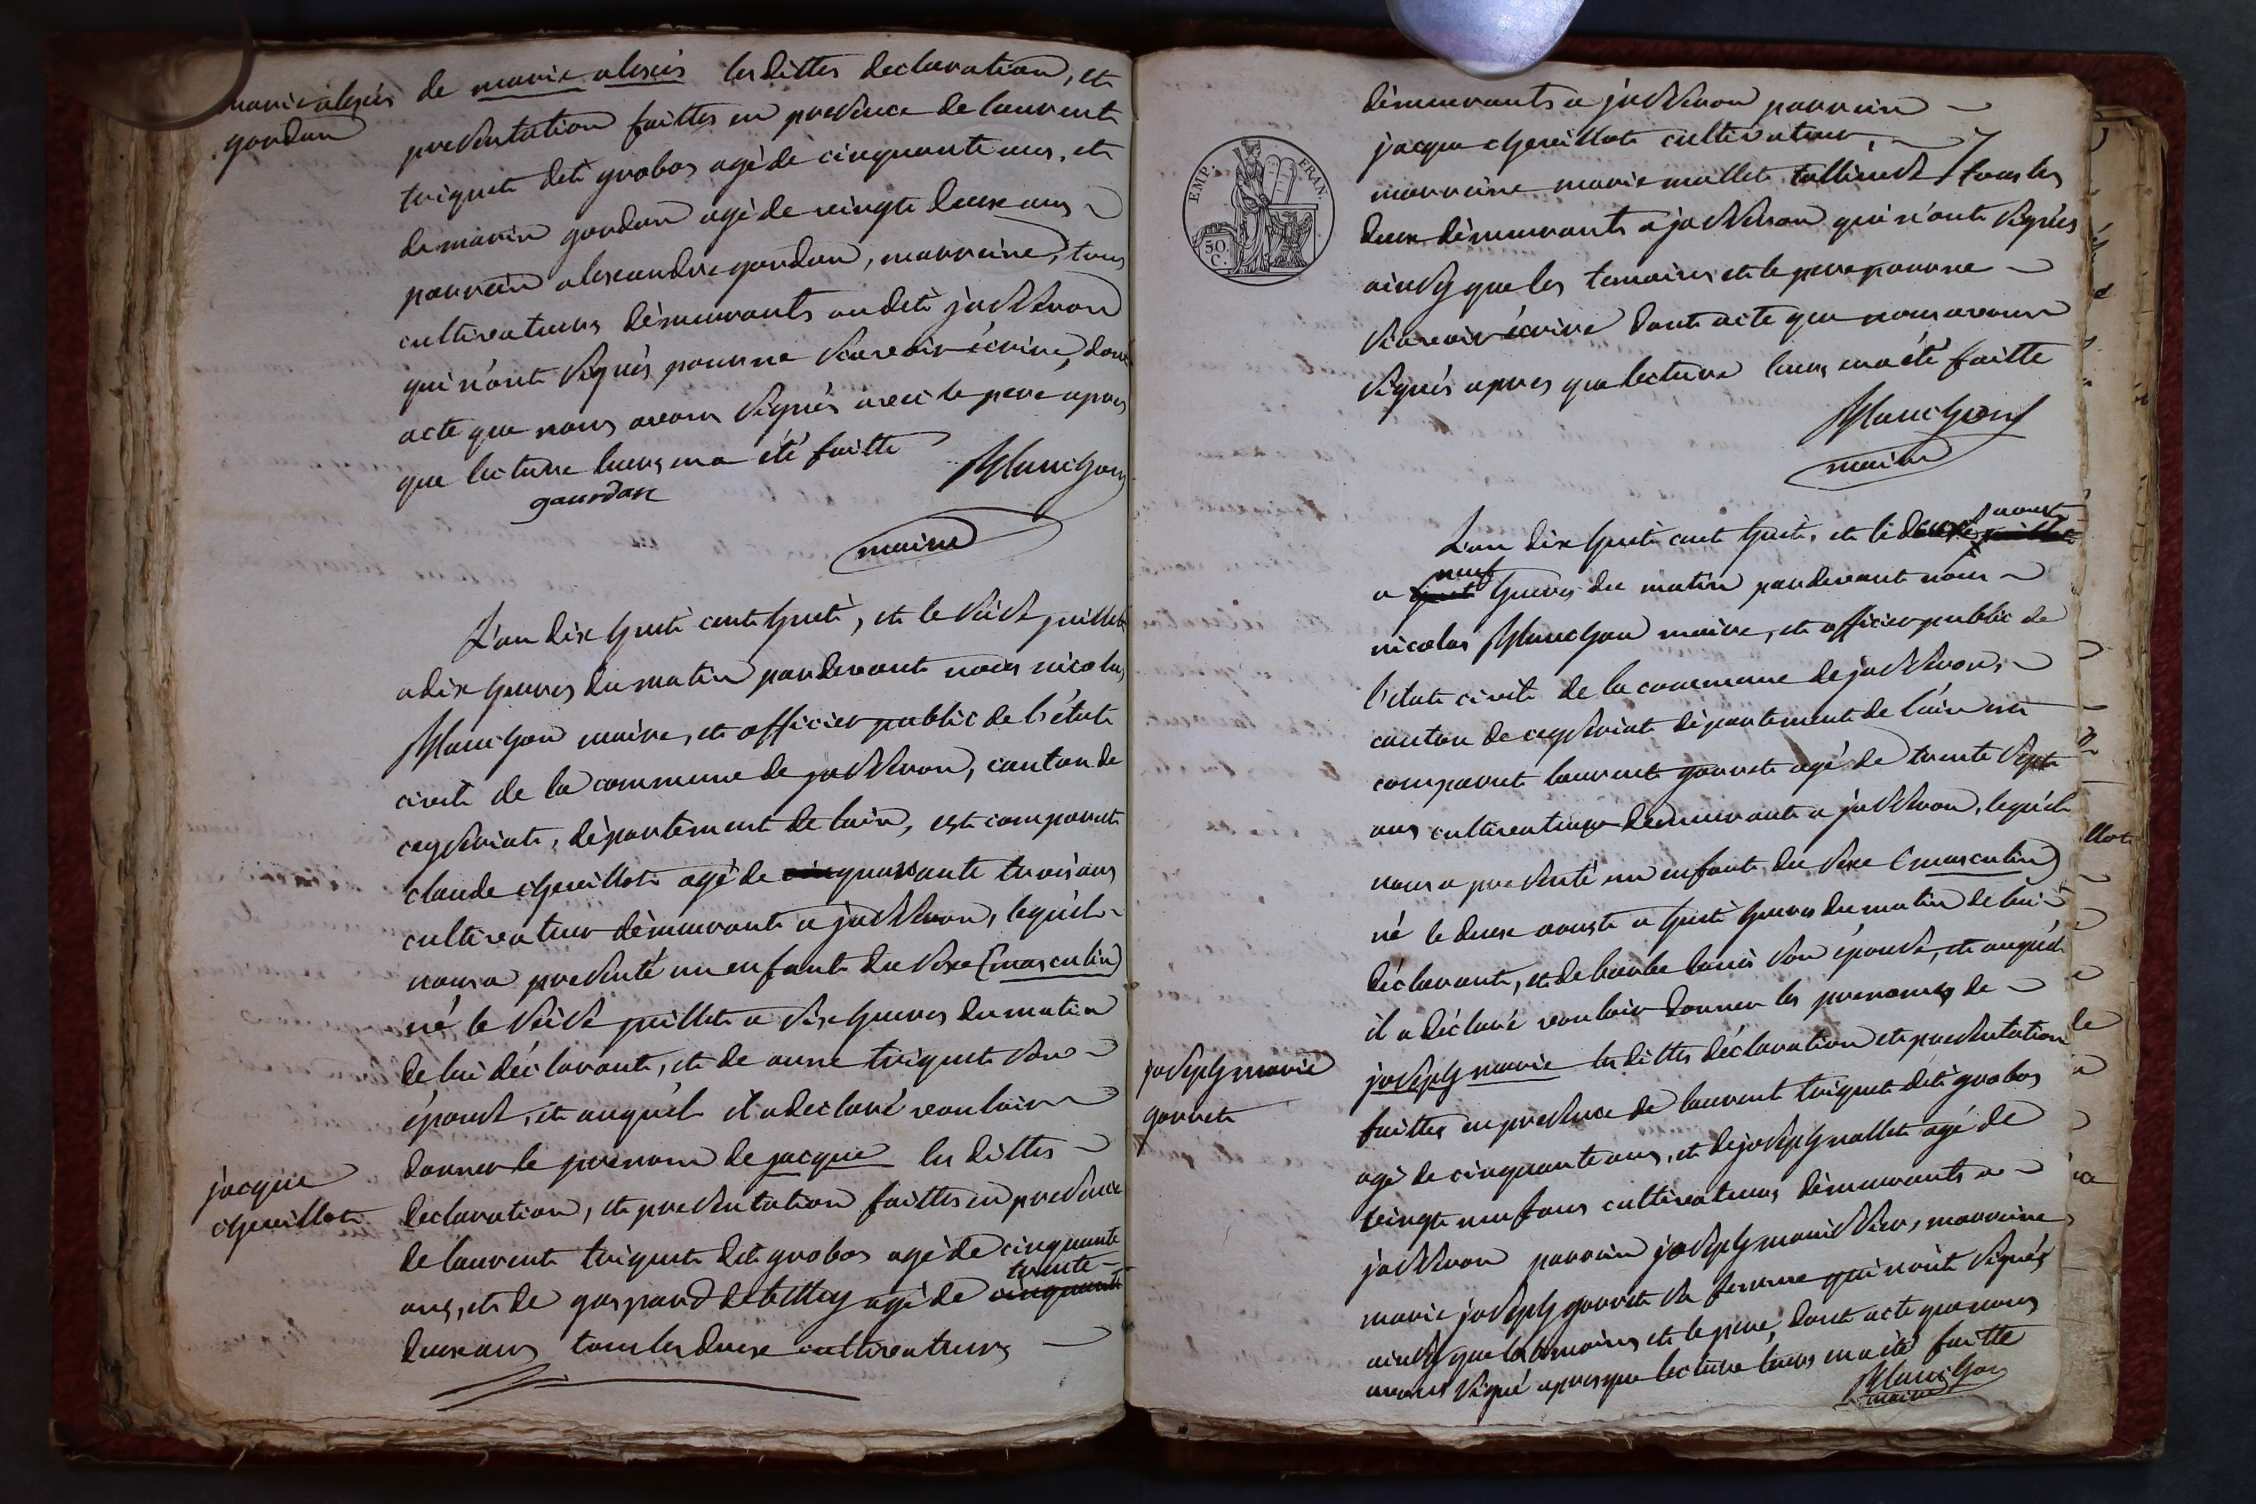 marie alexis
gourdan
de marie alexis les dittes declaration, et
presentation faittes en presence de laurent
triquet dit grobos agé de cinquante ans, et
de marin gourdan agé de vingt deux ans
parrain alexandre gourdan, marreine, tous
cultivateurs démeurants audit jasseron
qui n'ont signés pour ne scavoir écrire, dont
acte que nous avons signés avec le pere apres
que lecture leurs en a été faitte
gourdan
Planchon
maire
L'an dix huit cent huit, et le seise juillet
a dix heures du matin pardevant nous nicolas
Planchon maire, et officier public de l'état
civil de la commune de jasseron, canton de
ceyseriat, département de lain, est comparut
claude chevillot agé de quarante trois ans
cultivateur démeurant a jasseron, lequel
nous a presenté un enfant du sexe (masculin)
né le seise juillet a six heures du matin
de lui déclarant, et de anne triquet son
épouse, et auquel il a declaré vouloir
donner le prenom de jacque les dittes
jacque
chevillot
declaration, et presentation faittes en presence
de laurent triquet dit grobos agé de cinquante
ans, et de gaspard debelley agé de trente
deux ans tous les deux cultivateurs
EMP. FRAN.
50 C.
démeurants a jasseron parrain
jacque chevillot cultivateur
marreine marie mallet tous les
deux démeurants a jasseron qui n'ont signés
ainsy que les temoins et le pere pour ne
scavoir écrire dont acte que nous avons
signés apres que lecture leurs en a été faitte
Planchon
maire
L'an dix huit cent huit, et le deuxe aoust
a neuf heures du matin pardevant nous
nicolas Planchon maire, et officier public de
l'etat civil de la commune de jasseron,
canton de ceyseriat département de l'ain est
comparut laurent gorret agé de trente sept
ans cultivateur demeurant a jasseron, lequel
nous a presenté un enfant du sexe (masculin)
né le deuxe aoust a huit heures du matin de lui
déclarant, et de barbe lanis son épouse, et auquel
il a déclaré vouloir donner les prenoms de
joseph marie
gorret
joseph marie les dittes déclaration et presentation
faittes en presence de laurent triquet dit grobos
agé de cinquante ans, et de joseph mallet agé de
vingt neuf ans cultivateurs démeurants a
jasseron parrain joseph marissier, marreine
marie joseph gorret sa femme qui n'ont signés
ainsy que les temoins et le pere, dont acte que nous
avons signé apres que lecture leurs en a été faitte
Planchon
maire